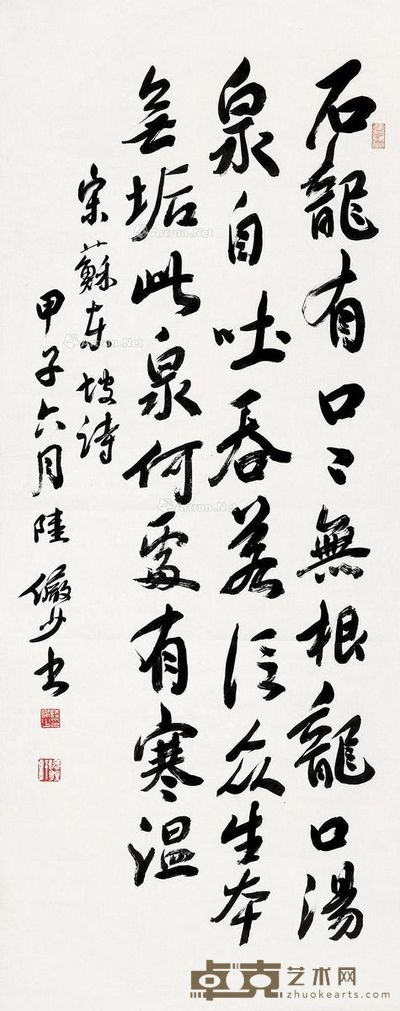 石龍有口〻無根龍口湯
泉自吐吞若信众生本
無垢此泉何處有寒温
宋蘇東坡詩
甲子六月陸儼少书
Artron.Net
Artron.Net
卓克艺术网
zhuokearts.com